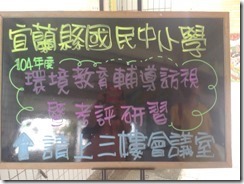 宜蘭縣國民中小學
104年度
環境教育輔導訪視
暨考評研習
請上三樓會議室